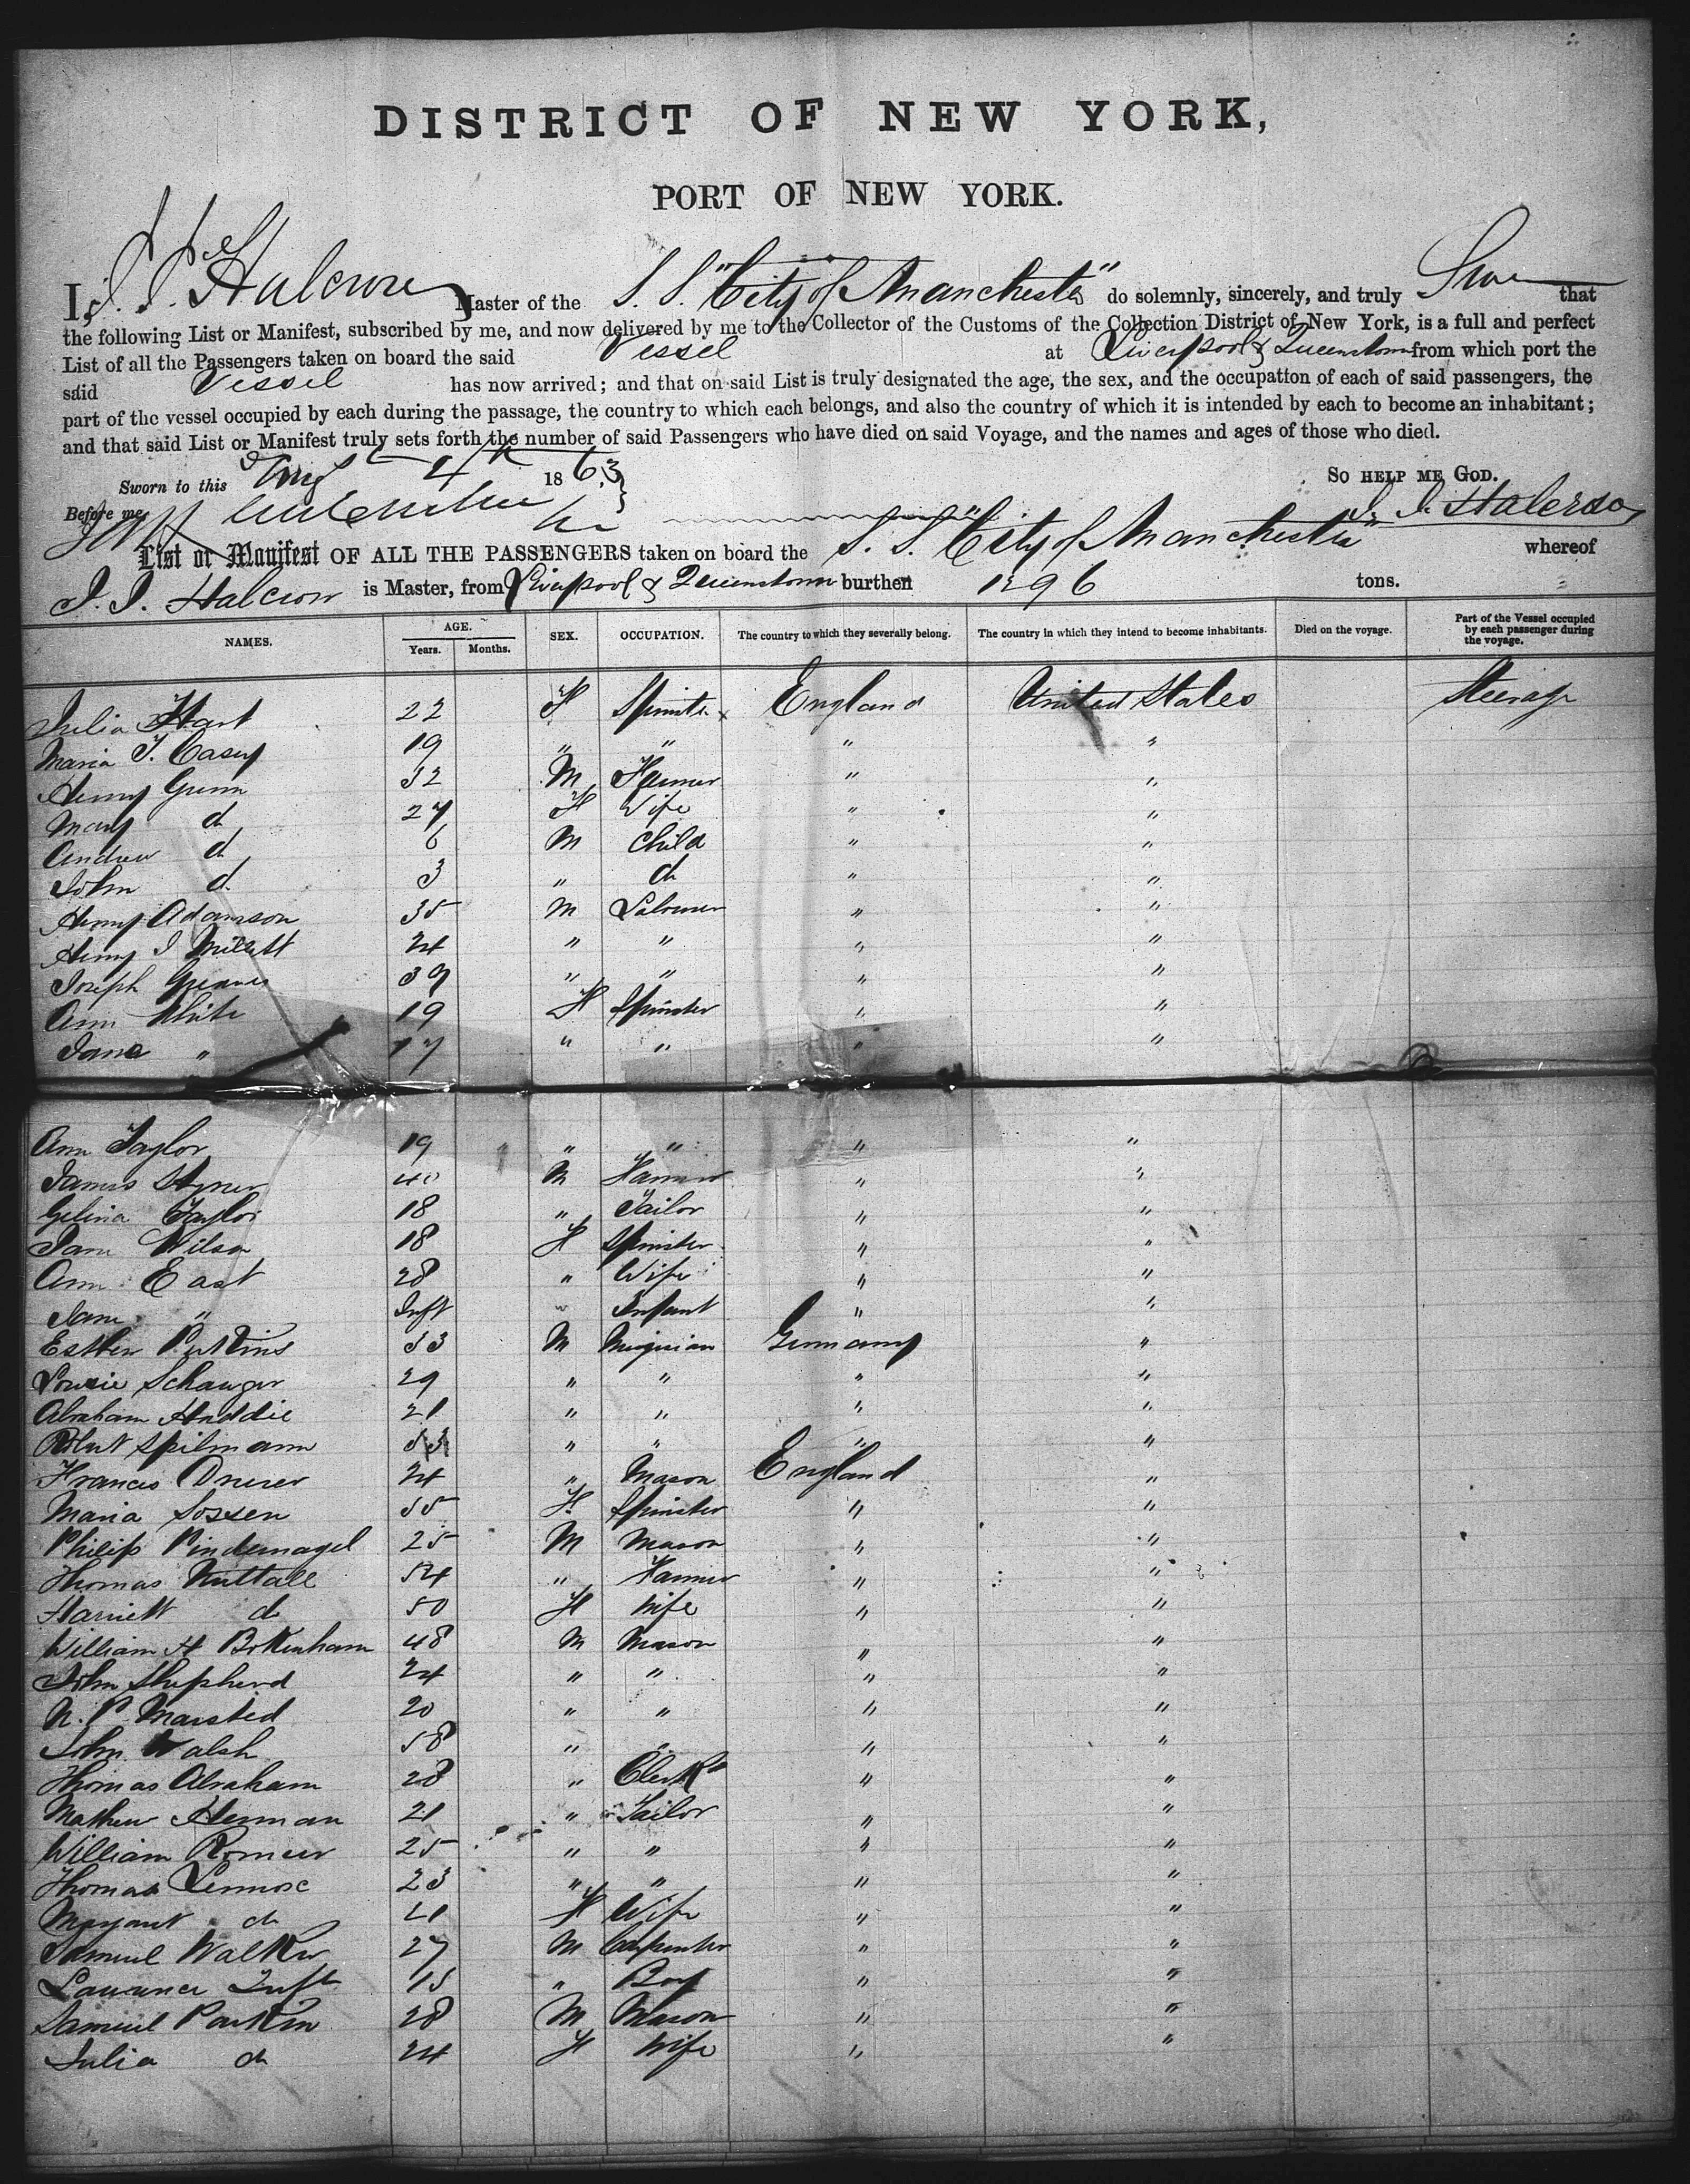 DISTRICT OF NEW YORK,
PORT OF NEW YORK.
I, J. J. Halcrow Master of the S. S. "City of Manchester" do solemnly, sincerely, and truly Swear that
the following List or Manifest, subscribed by me, and now delivered by me to the Collector of the Customs of the Collection District of New York, is a full and perfect
List of all the Passengers taken on board the said Vessel at Liverpool & Queenstown from which port the
said Vessel has now arrived; and that on said List is truly designated the age, the sex, and the occupation of each of said passengers, the
part of the vessel occupied by each during the passage, the country to which each belongs, and also the country of which it is intended by each to become an inhabitant;
and that said List or Manifest truly sets forth the number of said Passengers who have died on said Voyage, and the names and ages of those who died.
Sworn to this Augt 4th 1863 SO HELP ME GOD.
Before me J. J. Halcrow
List or Manifest OF ALL THE PASSENGERS taken on board the S. S. "City of Manchester" whereof
J. J. Halcrow is Master, from Liverpool & Queenstown burthen 1296 tons.
NAMES. AGE. Years. Months. SEX. OCCUPATION. The country to which they severally belong. The country in which they intend to become inhabitants. Died on the voyage. Part of the Vessel occupied by each passenger during the voyage.
Julia Hart 22 F Spinster England United States Steerage
Maria T. Casey 19 " " " "
Henry Gunn 32 M Farmer " "
Mary do 27 F Wife " "
Andrew do 6 M Child " "
John do 3 " do " "
Henry Adamson 35 M Labourer " "
Henry J Millett 24 " " " "
Joseph Greaves 39 " " " "
Ann White 19 F Spinster " "
Jane " 17 " " " "
Ann Taylor 19 " " " "
James 40 M Farmer " "
Gelina Taylor 18 " Tailor " "
Jane Wilson 18 F Spinster " "
Ann East 28 " Wife " "
Jane " Inft " Infant " "
Esther Perkins 33 M Musician Germany "
Lousie Schauger 29 " " " "
Abraham Haddie 21 " " " "
Robert Spilmann " " " "
Frances 24 " Mason England "
Maria Sossen 55 F Spinster " "
Philip Pindernagel 25 M Mason " "
Thomas Nuttall 54 " Farmer " "
Harriett do 50 F Wife " "
William H Bokenham 48 M Mason " "
John Shepherd 24 " " " "
N. P. Marsted 20 " " " "
John Walsh 58 " " " "
Thomas Abraham 28 " Clerk " "
Mathew Herman 21 " Tailor " "
William Romeur 25 " " " "
Thomas Lennox 23 " " " "
Margaret do 21 F Wife " "
Samuel Walker 27 M Carpenter " "
Lawrence 15 " Boy " "
Samuel Parkin 28 M Mason " "
Julia do 24 F Wife " "